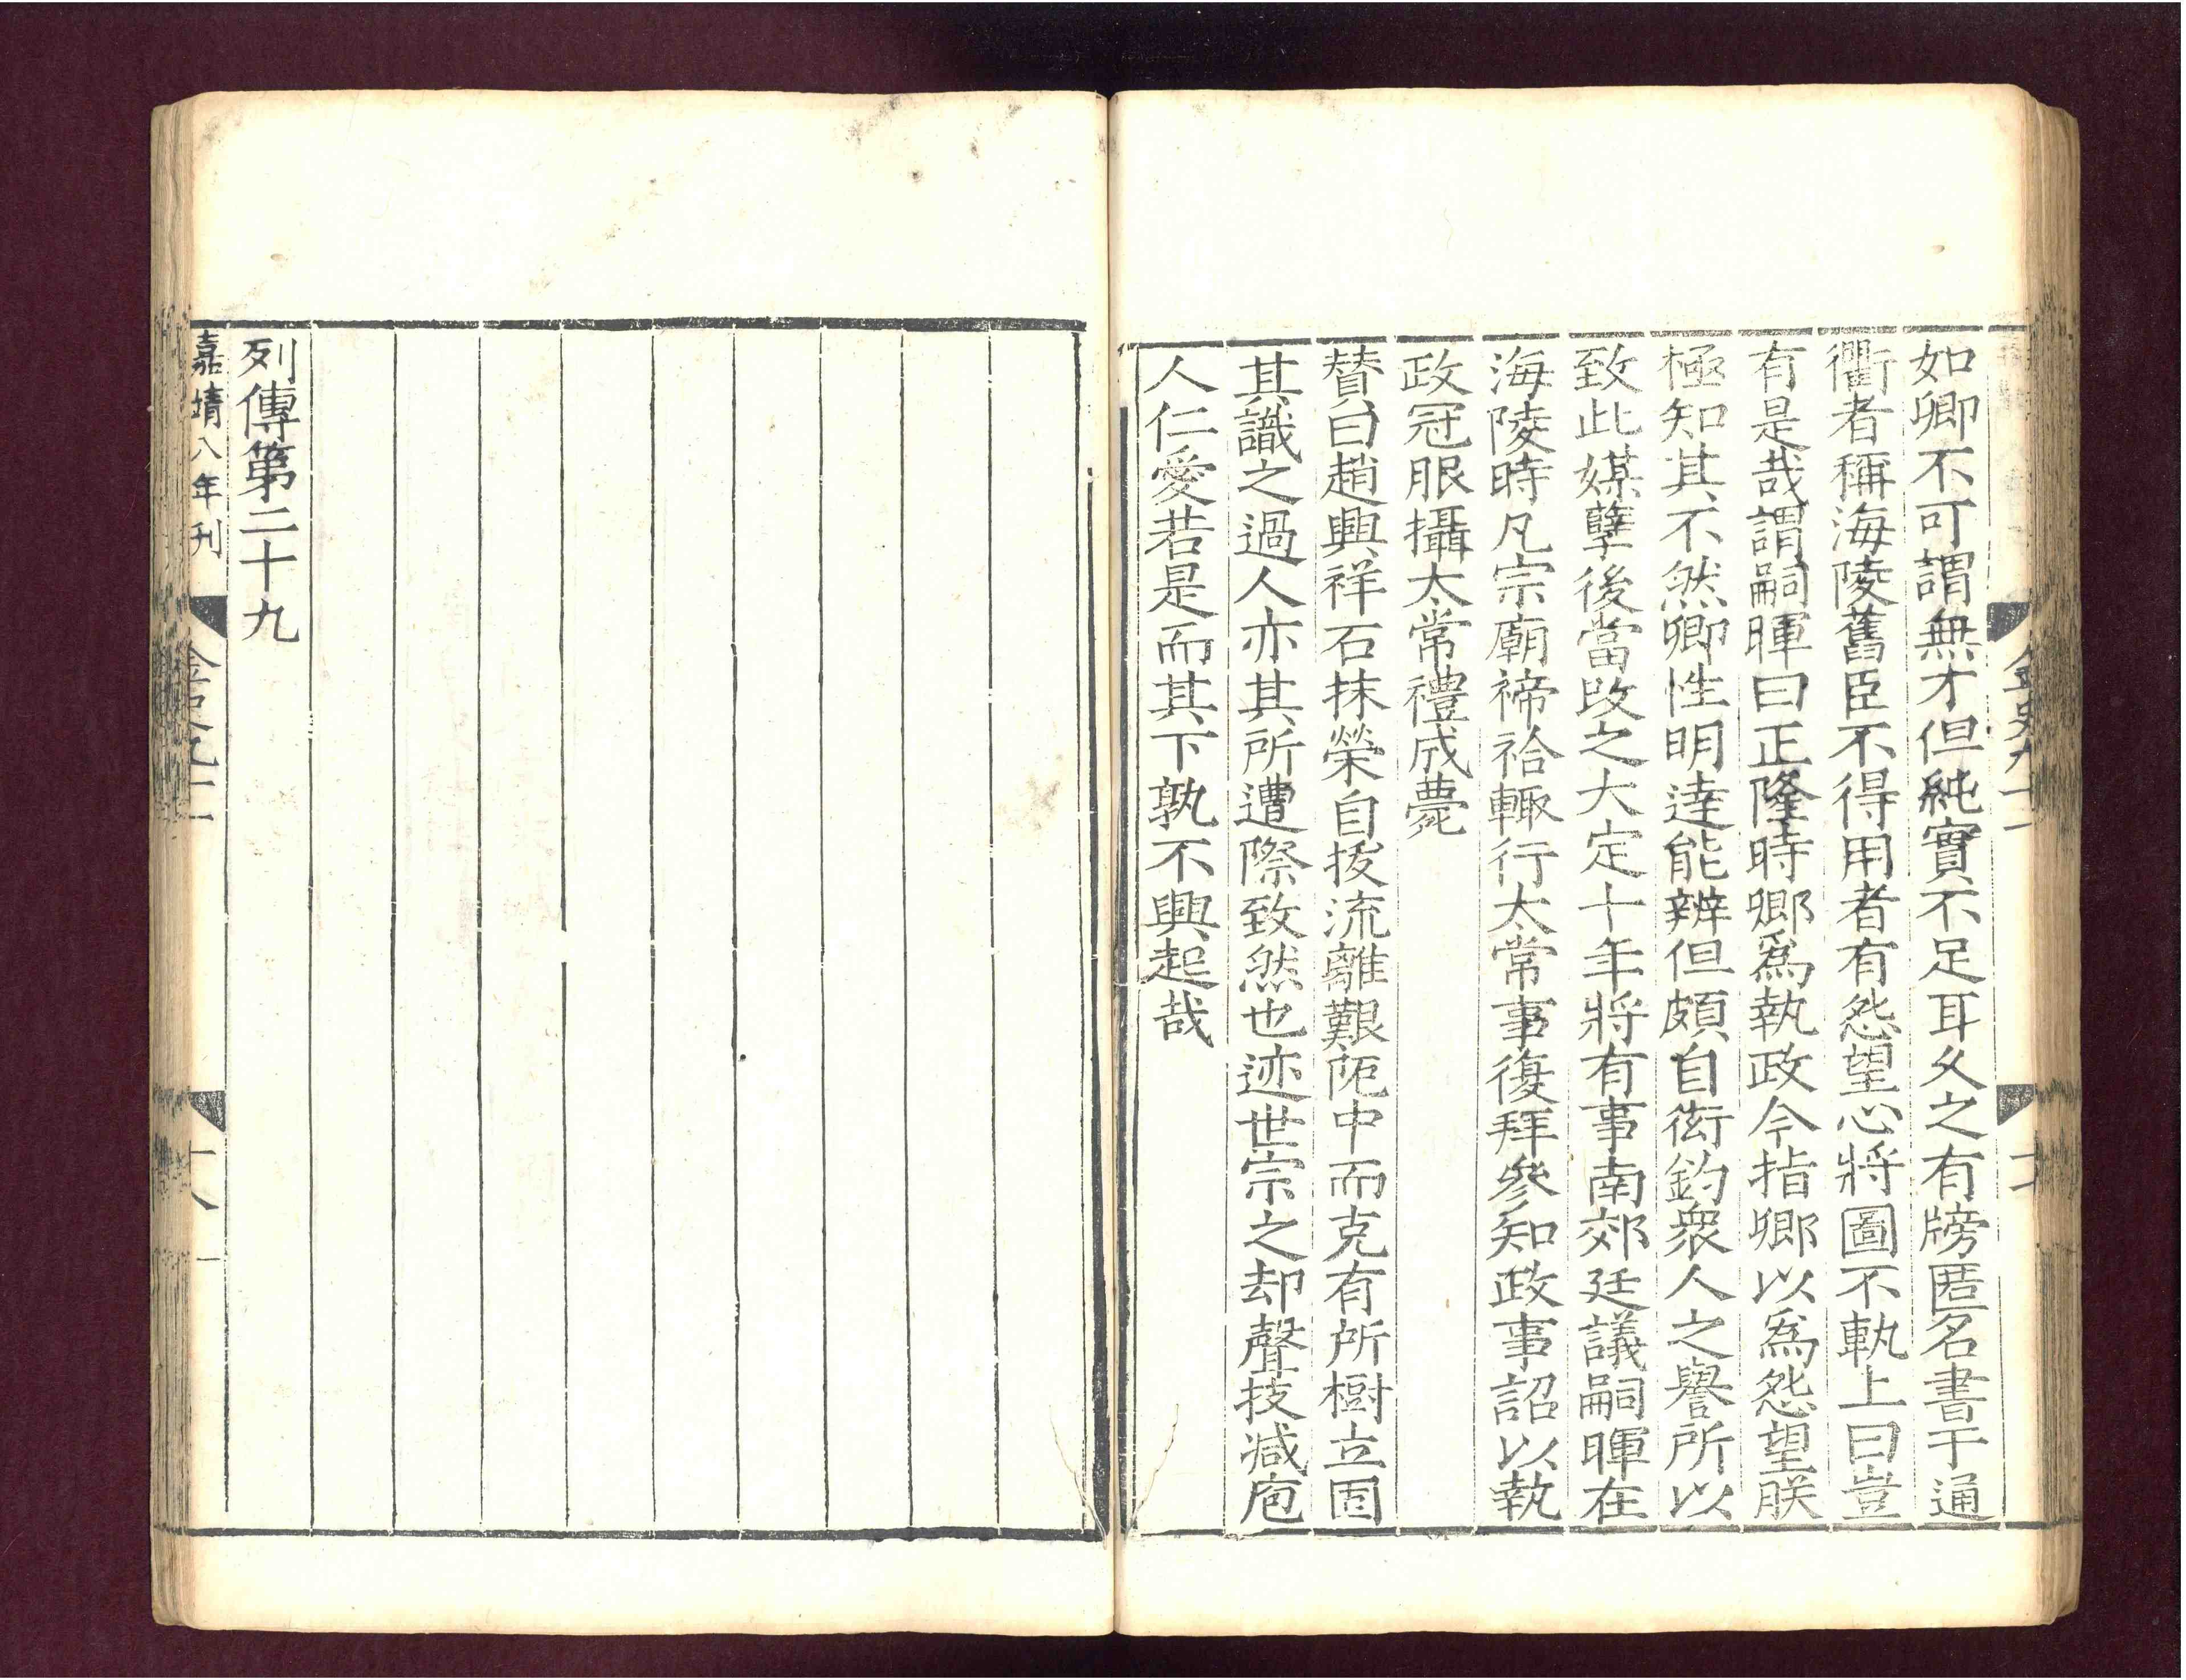 如卿不可謂無才但純實不足耳久之有牓匿名書于通
衢者稱海陵舊臣不得用者有怨望心將圖不軌上曰豈
有是哉謂嗣暉曰正隆時卿爲執政今指卿以爲怨望朕
極知其不然卿性明達能辨但頗自衒釣衆人之譽所以
致此媒孽後當改之大定十年將有事南郊廷議嗣暉在
海陵時凡宗廟禘祫輒行太常事復拜參知政事詔以執
政冠服攝太常禮成薨
贊曰趙興祥石抹榮自拔流離艱阨中而克有所樹立固
其識之過人亦其所遭際致然也迹世宗之却聲技減庖
人仁愛若是而其下孰不興起哉
列傳第二十九
嘉靖八年刊
金史九十一
十八